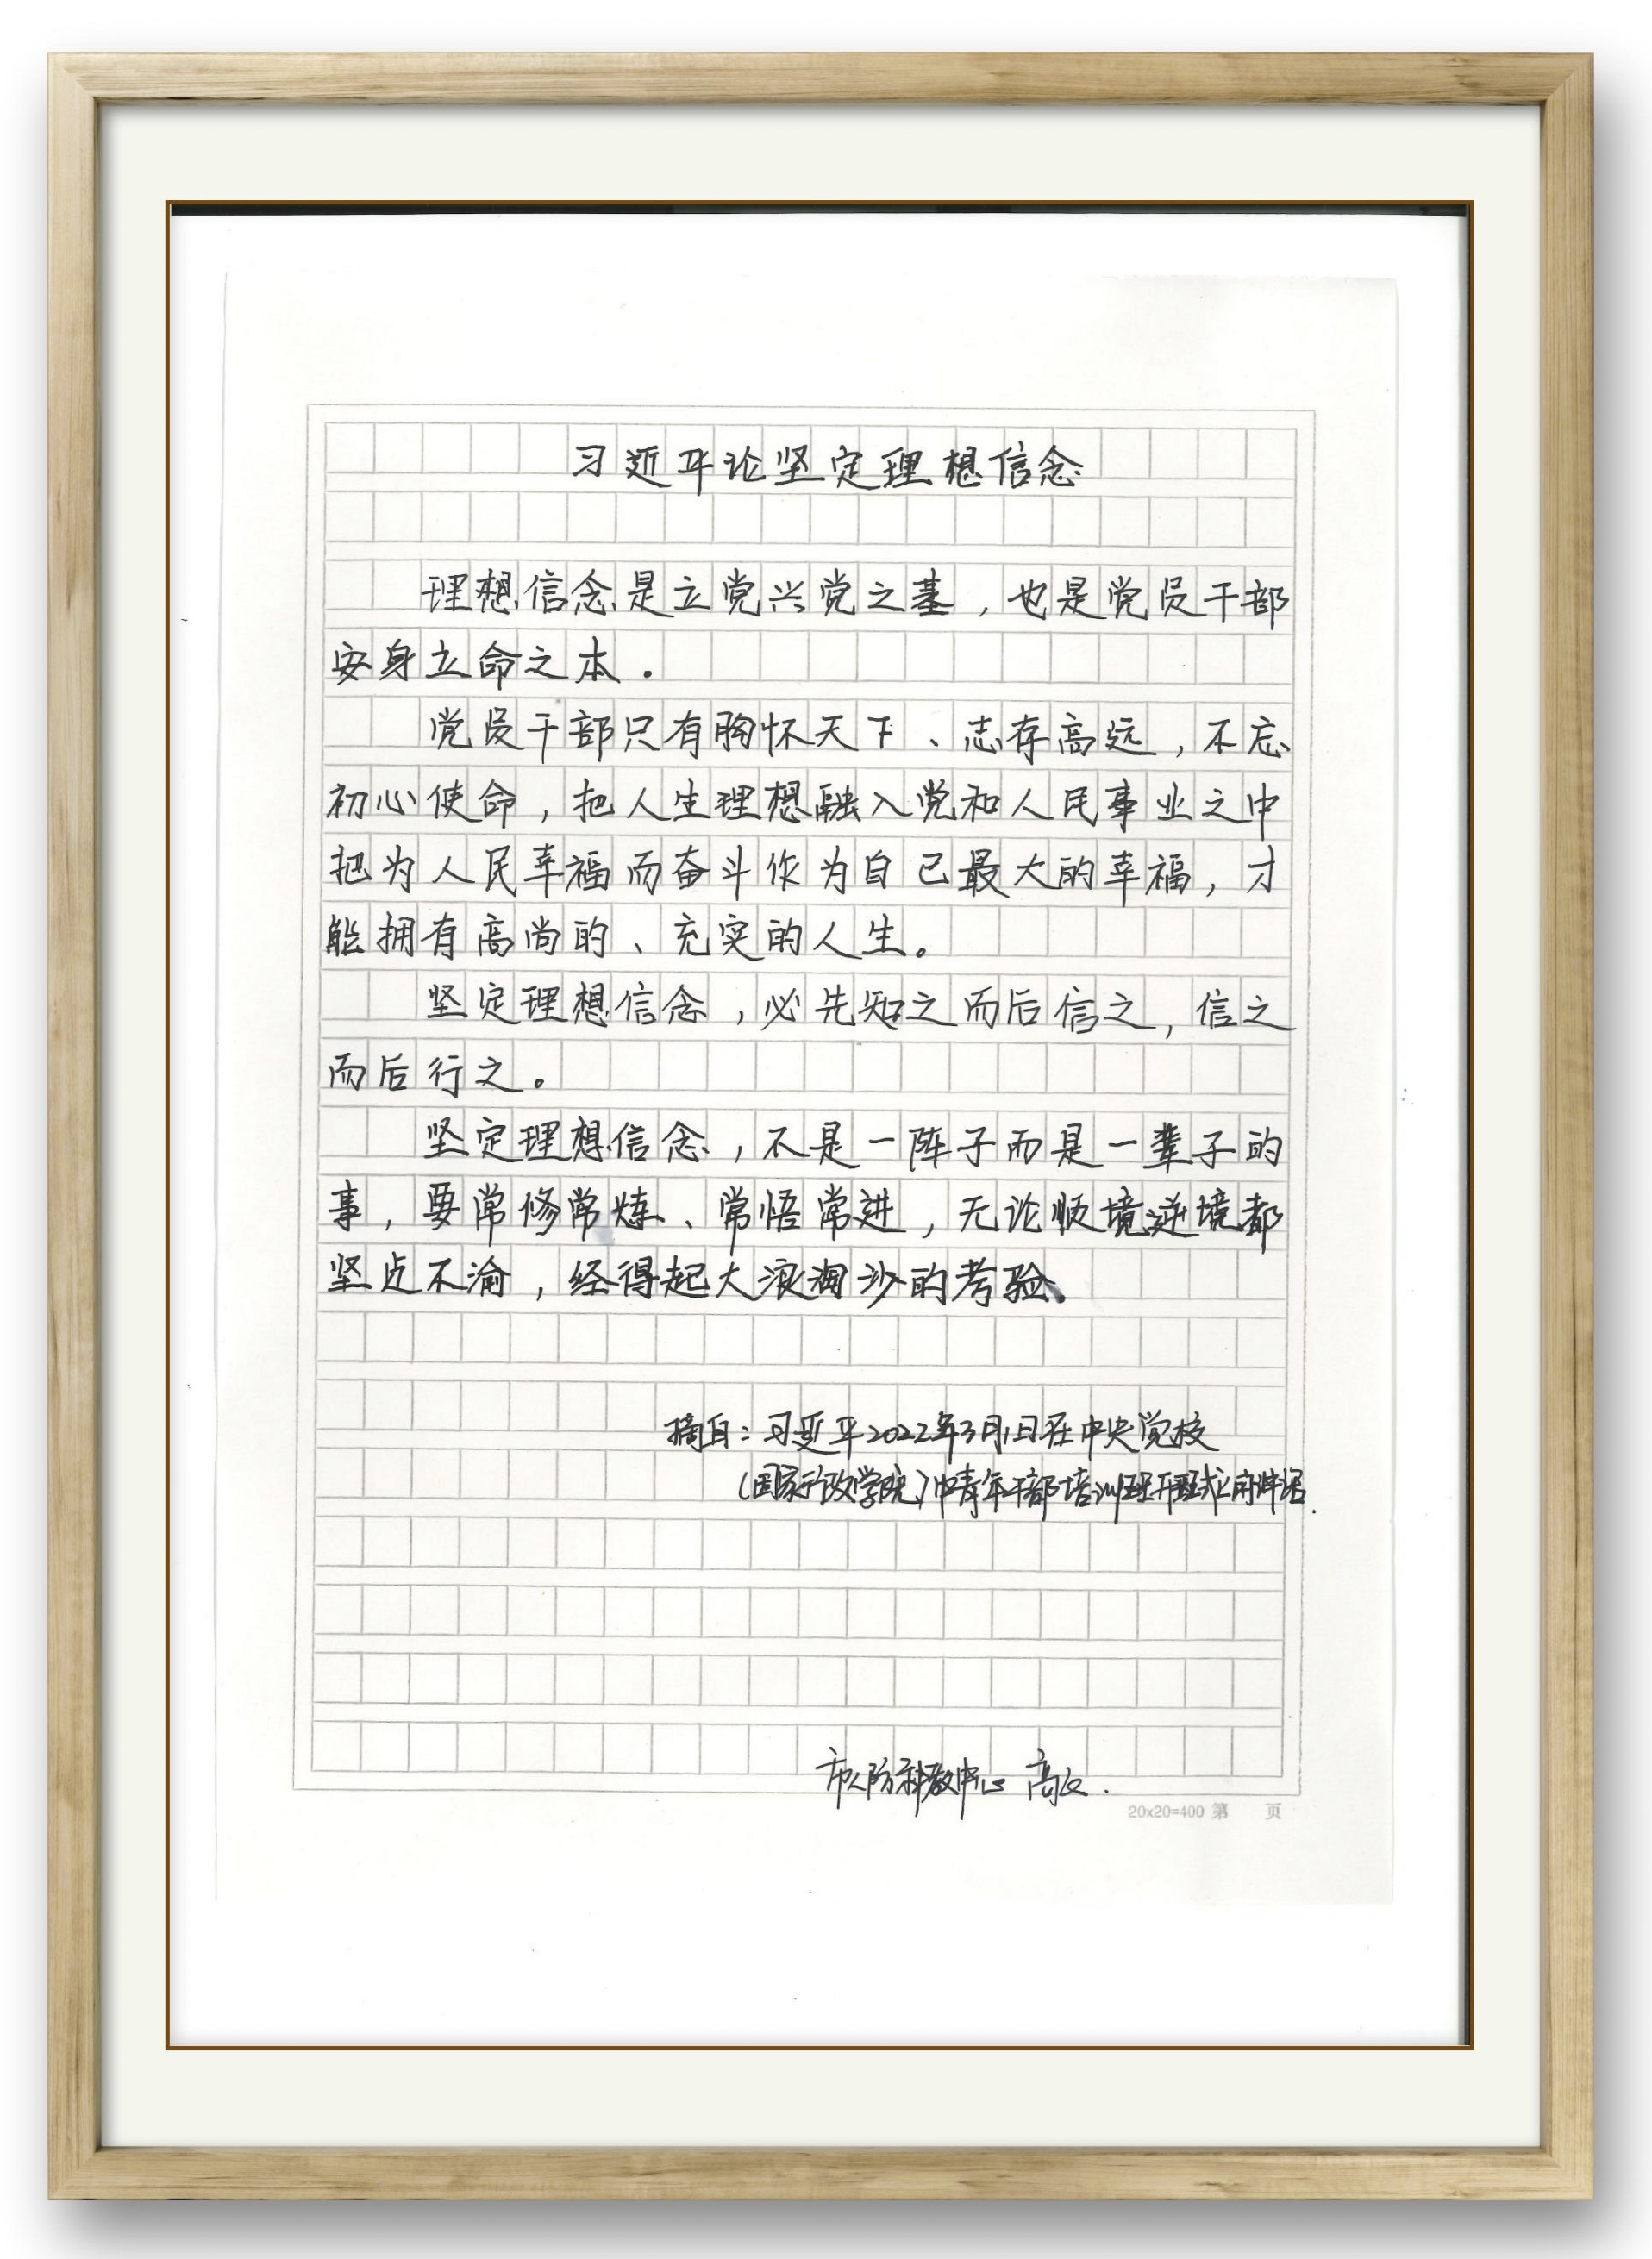 习近平论坚定理想信念
理想信念是立党兴党之基，也是党员干部
安身立命之本．
党员干部只有胸怀天下、志存高远，不忘
初心使命，把人生理想融入党和人民事业之中
把为人民幸福而奋斗作为自己最大的幸福，才
能拥有高尚的、充实的人生。
坚定理想信念，必先知之而后信之，信之
而后行之。
坚定理想信念，不是一阵子而是一辈子的
事，要常修常炼、常悟常进，无论顺境逆境都
坚贞不渝，经得起大浪淘沙的考验。
摘自：习近平2022年3月1日在中央党校
（国家行政学院）中青年干部培训班开班式上的讲话．
市人防科教中心 高
20x20=400 第 页